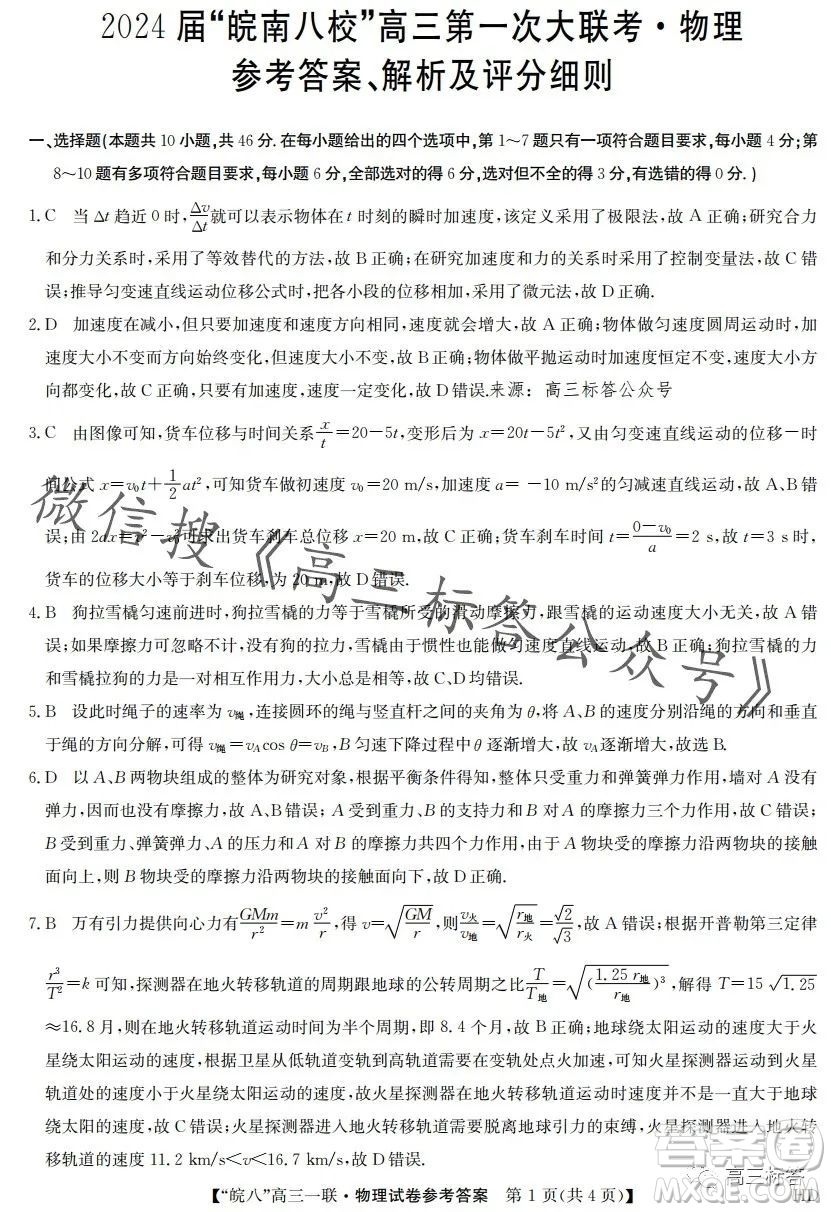 2024 届“皖南八校”高三第一次大联考·物理
参考答案、解析及评分细则
一、选择题(本题共 10 小题,共 46 分.在每小题给出的四个选项中,第 1～7 题只有一项符合题目要求,每小题 4 分;第
8～10 题有多项符合题目要求,每小题 6 分,全部选对的得 6 分,选对但不全的得 3 分,有选错的得 0 分.)
1.C 当 Δt 趋近 0 时,Δv/Δt就可以表示物体在 t 时刻的瞬时加速度,该定义采用了极限法,故 A 正确;研究合力
和分力关系时,采用了等效替代的方法,故 B 正确;在研究加速度和力的关系时采用了控制变量法,故 C 错
误;推导匀变速直线运动位移公式时,把各小段的位移相加,采用了微元法,故 D 正确.
2.D 加速度在减小,但只要加速度和速度方向相同,速度就会增大,故 A 正确;物体做匀速度圆周运动时,加
速度大小不变而方向始终变化,但速度大小不变,故 B 正确;物体做平抛运动时加速度恒定不变,速度大小方
向都变化,故 C 正确,只要有加速度,速度一定变化,故 D 错误.来源：高三标答公众号
3.C 由图像可知,货车位移与时间关系x/t=20-5t,变形后为 x=20t-5t²,又由匀变速直线运动的位移一时
间公式 x=v₀t+1/2at²,可知货车做初速度 v₀=20 m/s,加速度 a=-10 m/s²的匀减速直线运动,故 A、B 错
误;由 2ax=v²-v₀²可求出货车刹车总位移 x=20 m,故 C 正确;货车刹车时间 t=(0-v₀)/a=2 s,故 t=3 s 时,
货车的位移大小等于刹车位移,为 20 m,故 D 错误.
4.B 狗拉雪橇匀速前进时,狗拉雪橇的力等于雪橇所受的滑动摩擦力,跟雪橇的运动速度大小无关,故 A 错
误;如果摩擦力可忽略不计,没有狗的拉力,雪橇由于惯性也能做匀速度直线运动,故 B 正确;狗拉雪橇的力
和雪橇拉狗的力是一对相互作用力,大小总是相等,故 C、D 均错误.
5.B 设此时绳子的速率为 v绳,连接圆环的绳与竖直杆之间的夹角为 θ,将 A、B 的速度分别沿绳的方向和垂直
于绳的方向分解,可得 v绳=vAcos θ=vB,B 匀速下降过程中 θ 逐渐增大,故 vA逐渐增大,故选 B.
6.D 以 A、B 两物块组成的整体为研究对象,根据平衡条件得知,整体只受重力和弹簧弹力,墙对 A 没有
弹力,因而也没有摩擦力,故 A、B 错误；A 受重力、B 的支持力和 B 的摩擦力三个力作用,故 C 错误；
B 受到重力、弹簧弹力、A 的压力和 A 对 B 的摩擦力共四个力作用,由于 A 物块受的摩擦力沿两物块的接触面
向上,则 B 物块受的摩擦力沿两物块的接触面向下,故 D 正确.
7.B 万有引力提供向心力有GMm/r²=m v²/r,得 v=√(GM/r),则v火/v地=√(r地/r火)=√2/√3,故 A 错误;根据开普勒第三定律
r³/T²=k 可知,探测器在地火转移轨道的周期跟地球的公转周期之比T/T地=√((1.25 r地/r地)³),解得 T=15 √1.25
≈16.8 月,则在地火转移轨道运动时间为半个周期,即 8.4 个月,故 B 正确;地球绕太阳运动的速度大于火
星绕太阳运动的速度,根据卫星从低轨道变轨到高轨道需要在变轨处点火加速,可知火星探测器在地火转移
轨道处的速度小于火星绕太阳运动的速度,故火星探测器在地火转移轨道运动时速度并不一直大于地球
绕太阳的速度,故 C 错误;火星探测器在地火转移轨道需要脱离地球引力的束缚,火星探测器进入地火转
移轨道的速度 11.2 km/s＜v＜16.7 km/s,故 D 错误.
【“皖八”高三一联·物理试卷参考答案 第 1 页(共 4 页)】
HD
微信搜《高三标答公众号》
高三标答
答案圈
MXQE.COM